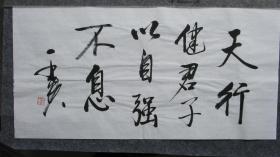 天行
健君子
以自强
不息